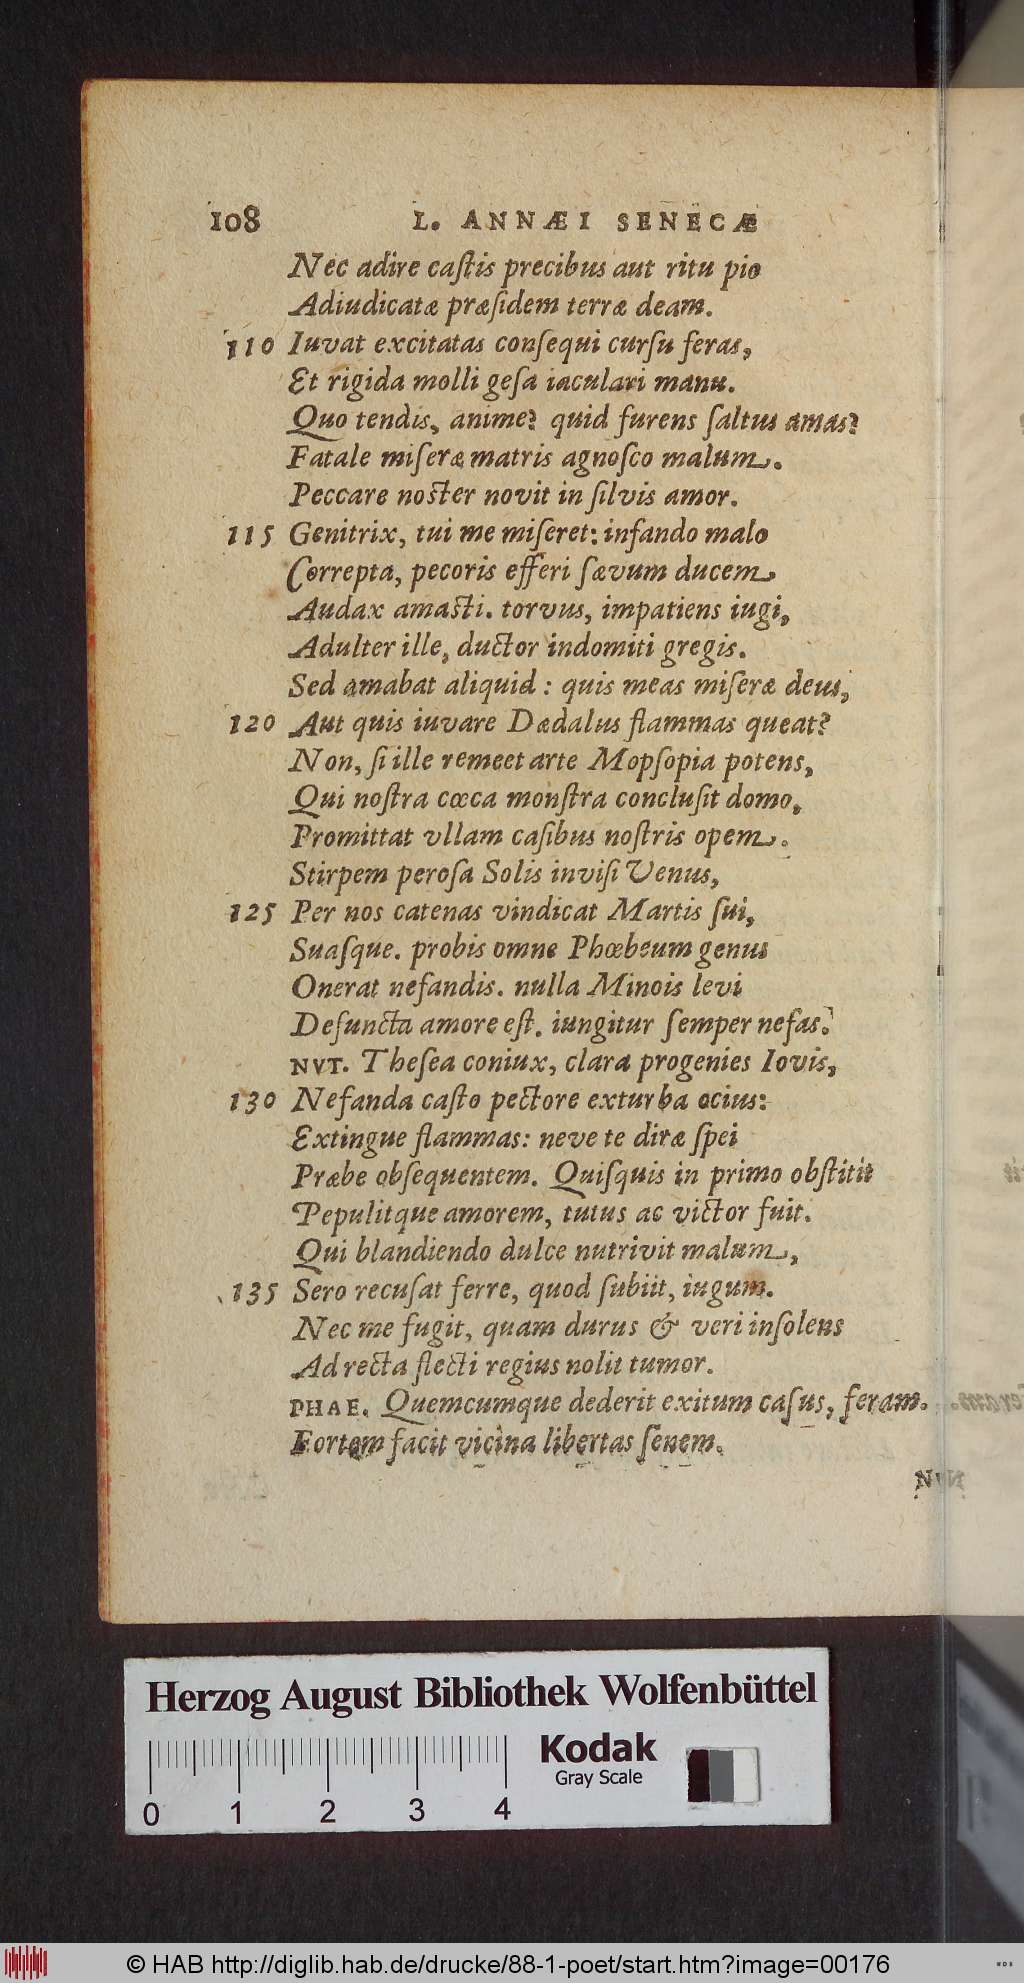 108 L. ANNÆI SENECÆ
Nec adire caſtis precibus aut ritu pio
Adiudicatæ præſidem terræ deam.
110 Iuvat excitatas conſequi curſu feras,
Et rigida molli geſa iaculari manu.
Quo tendis, anime? quid furens ſaltus amas?
Fatale miſeræ matris agnoſco malum.
Peccare noſter novit in ſilvis amor.
115 Genitrix, tui me miſeret: infando malo
Correpta, pecoris efferi ſævum ducem
Audax amaſti. torvus, impatiens iugi,
Adulter ille, ductor indomiti gregis.
Sed amabat aliquid: quis meas miſeræ deus,
120 Aut quis iuvare Dædalus flammas queat?
Non, ſi ille remeet arte Mopſopia potens,
Qui noſtra cœca monſtra concluſit domo,
Promittat vllam caſibus noſtris opem.
Stirpem peroſa Solis inviſi Venus,
125 Per nos catenas vindicat Martis ſui,
Suaſque. probis omne Phœbeum genus
Onerat nefandis. nulla Minois levi
Defuncta amore eſt. iungitur ſemper nefas.
NVT. Theſea coniux, clara progenies Iovis,
130 Nefanda caſto pectore exturba ocius:
Extingue flammas: neve te diræ ſpei
Præbe obſequentem. Quiſquis in primo obſtitit
Pepulitque amorem, tutus ac victor fuit.
Qui blandiendo dulce nutrivit malum,
135 Sero recuſat ferre, quod ſubiit, iugum.
Nec me fugit, quam durus & veri inſolens
Ad recta flecti regius nolit tumor.
PHAE. Quemcumque dederit exitum caſus, feram.
Fortem facit vicina libertas ſenem.
Herzog August Bibliothek Wolfenbüttel
Kodak
Gray Scale
0 1 2 3 4
© HAB http://diglib.hab.de/drucke/88-1-poet/start.htm?image=00176